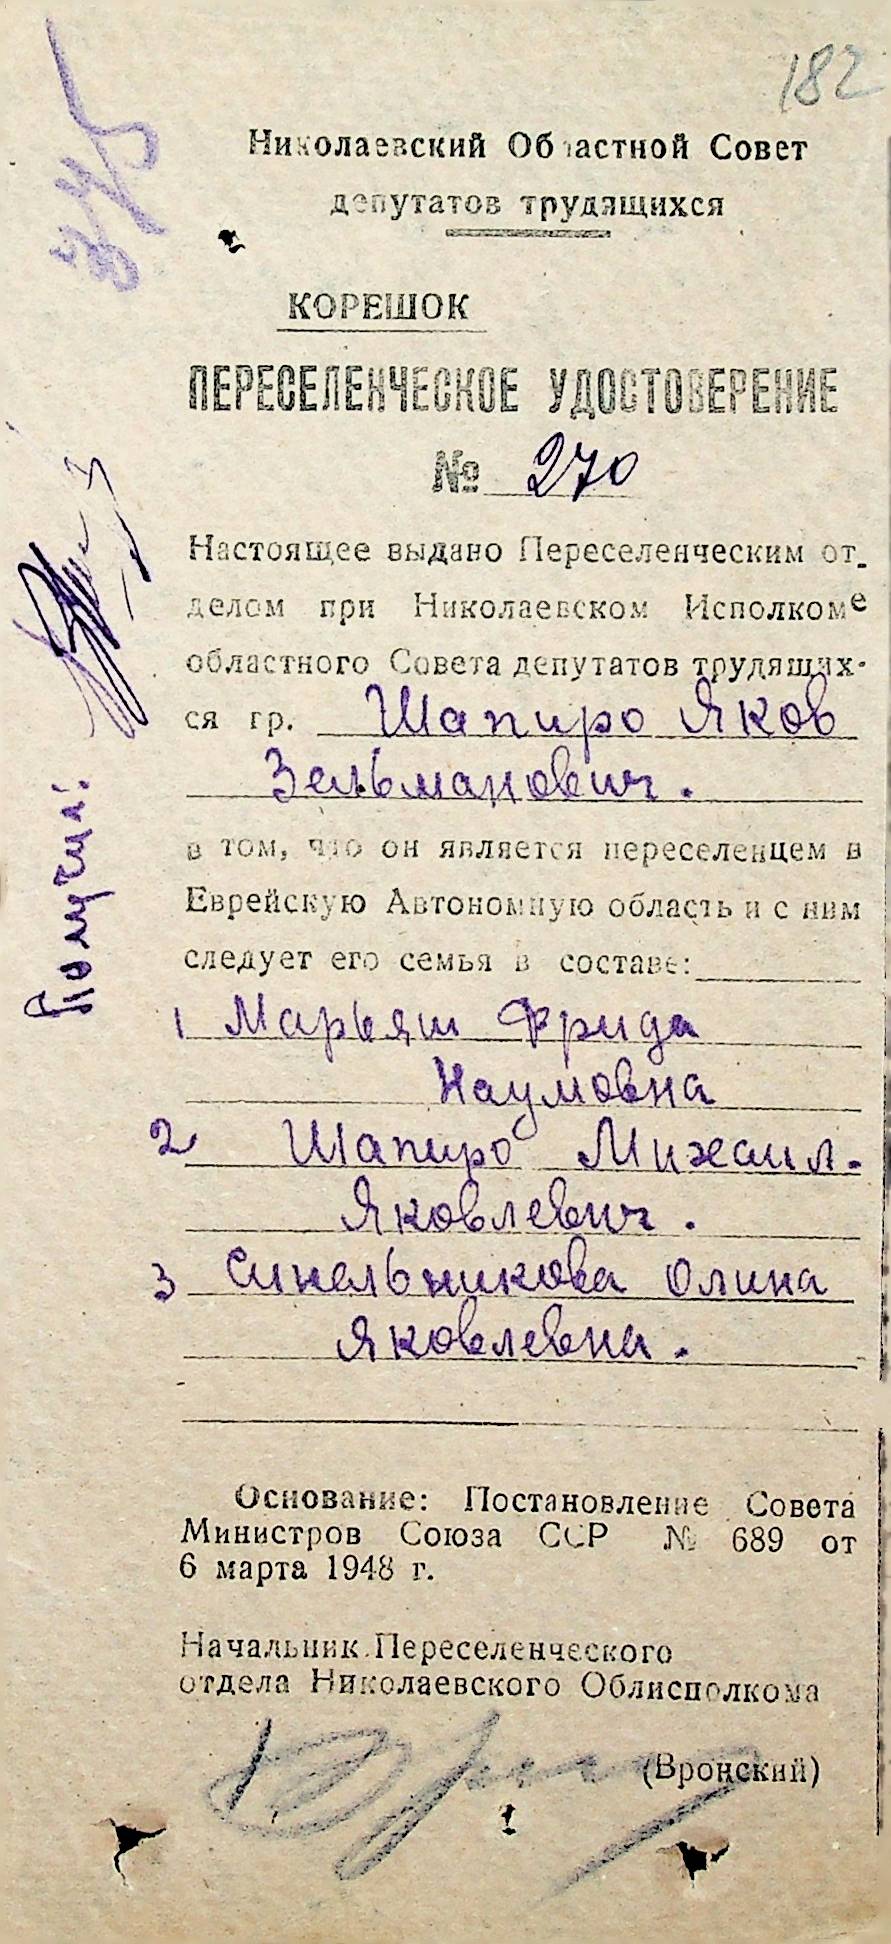 182
Николаевский Областной Совет
депутатов трудящихся
КОРЕШОК
ПЕРЕСЕЛЕНЧЕСКОЕ УДОСТОВЕРЕНИЕ
№ 270
Настоящее выдано Переселенческим от-
делом при Николаевском Исполкоме
областного Совета депутатов трудящих-
ся гр. Шапиро Яков
Зельманович.
в том, что он является переселенцем в
Еврейскую Автономную область и с ним
следует его семья в составе:
1 Марьяш Фрида
Наумовна
2 Шапиро Михаил.
Яковлевич.
3 Синельникова Олина
Яковлевна.
Основание: Постановление Совета
Министров Союза ССР № 689 от
6 марта 1948 г.
Начальник Переселенческого
отдела Николаевского Облисполкома
(Вронский)
Получил: